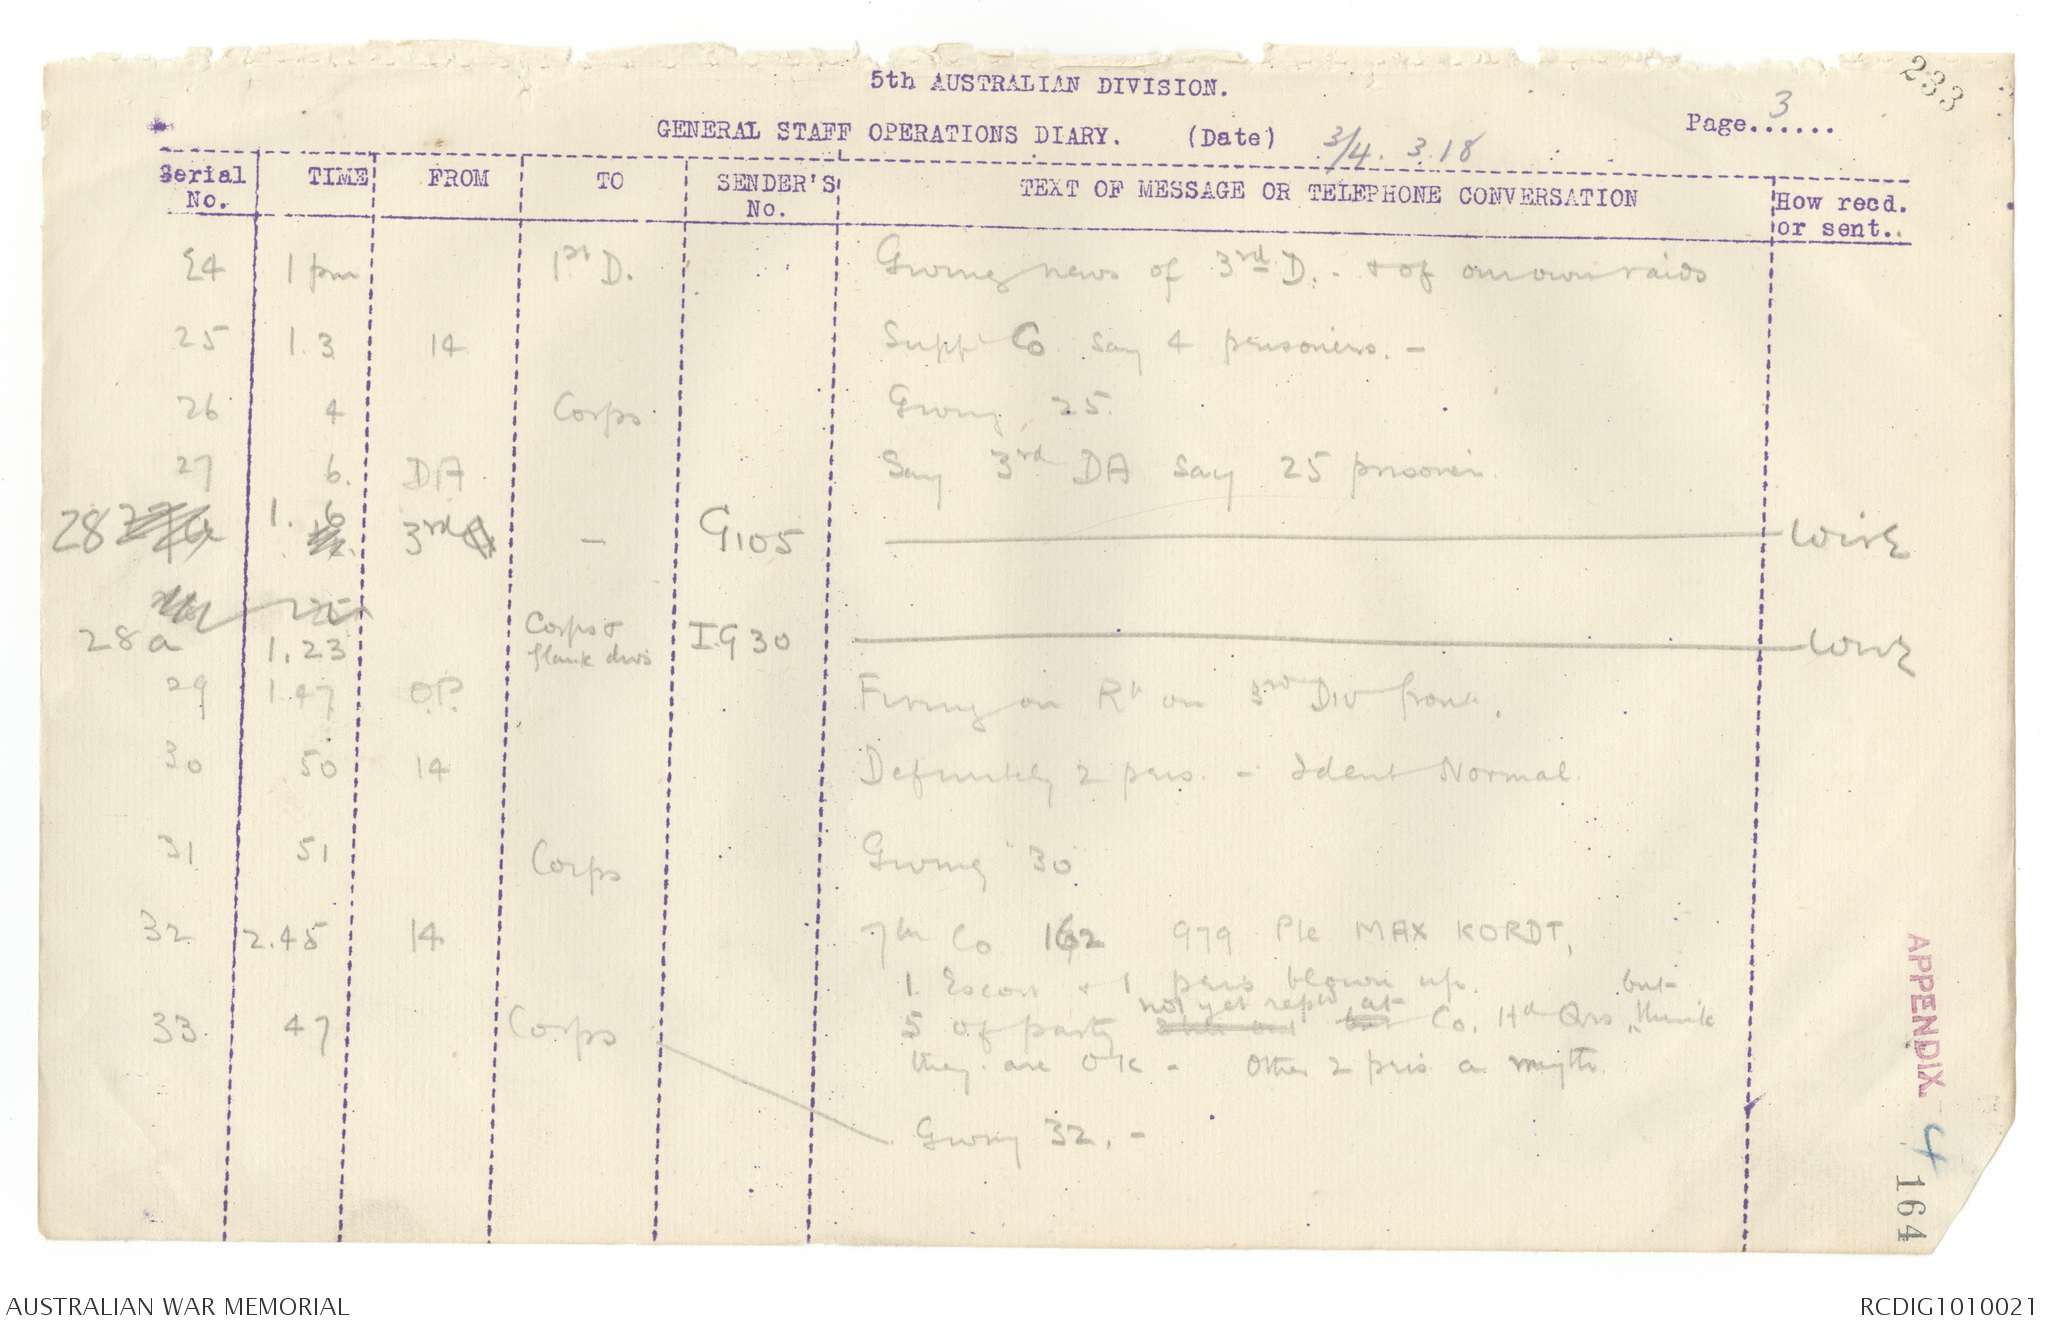 233
5th AUSTRALIAN DIVISION.
Page...3...
GENERAL STAFF OPERATIONS DIARY. (Date) 3/4. 3.18
Serial No. TIME FROM TO SENDER'S No. TEXT OF MESSAGE OR TELEPHONE CONVERSATION How recd. or sent..
24 1 pm 1st D. Giving news of 3rd D. - & of our own raids
25 1.3 14 Supp Co. say 4 prisoners. -
26 4 Corps Giving 25.
27 6. DA Say 3rd DA say 25 prisoners.
28 1. 6 3rd - G105 wire
28a 1.23 Corps & flank divs I.G 30 wire
29 1.47 O.P. Firing on Rt on 3rd Div front.
30 50 14 Definitely 2 pris. - Ident Normal.
31 51 Corps Giving 30
32 2.45 14 7th Co 162 979 Pte MAX KORDT,
1 Escort & 1 pris blown up. but
not yet rept at
33. 47 Corps 5 of party Co. Hd Qrs think
they are OK - Other 2 pris a myth.
Giving 32. -
APPENDIX 4
164
AUSTRALIAN WAR MEMORIAL
RCDIG1010021